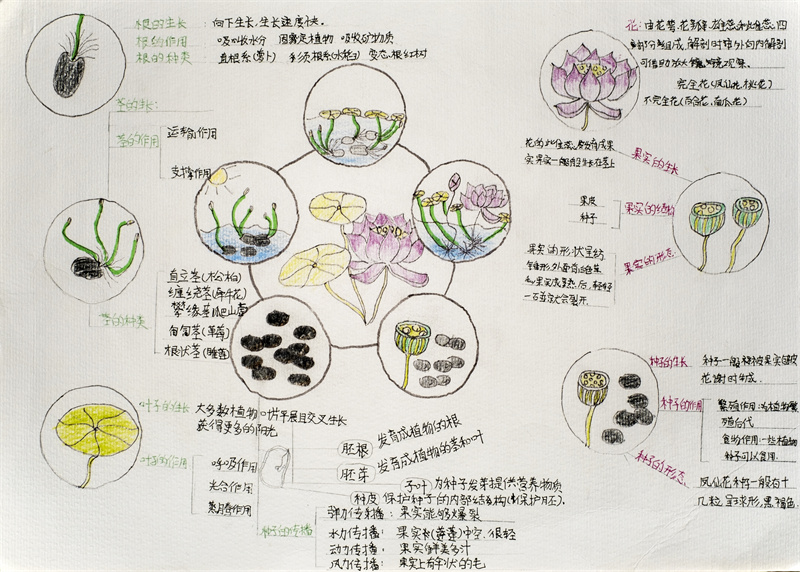 根的生长：向下生长，生长速度快。
根的作用 吸收水分 固定植物 吸收矿物质
根的种类 直根系(萝卜) 须根系(水稻) 变态根红树
茎的生长：
茎的作用 运输作用
支撑作用
茎的种类
直立茎(松柏)
缠绕茎(牵牛花)
攀缘茎爬山虎
匍匐茎(草莓)
根状茎(睡莲)
叶子的生长 大多数植物叶片平展且交叉生长
获得更多的阳光
叶的作用 呼吸作用
光合作用
蒸腾作用
胚根 发育成植物的根
胚芽 发育成植物的茎和叶
子叶 为种子发芽提供营养物质
种皮 保护种子的内部结构(保护胚).
种子的传播
弹力传播: 果实能够爆裂
水力传播: 果实(莲蓬)中空.很轻
动力传播: 果实鲜美多汁
风力传播: 果实上有羽状的毛
花: 由花萼,花瓣,雄蕊和雌蕊,四
部分组成.解剖时由外向内解剖
可借助放大镜观察.
完全花(凤仙花,桃花)
不完全花(百合花,南瓜花)
花的雌蕊,发育成果
实果实一般生长在茎上
果实的生长
果皮
种子
果实的结构
果实的形状
果实成熟后,轻轻
果实的形态
种子的生长 种子一般被果实的果皮
种子的作用 繁殖作用:为植物繁
殖后代
食物作用:一些植物
种子可以食用.
种子的形态 凤仙花种子一般有十
几粒,呈球形,黑褐色.